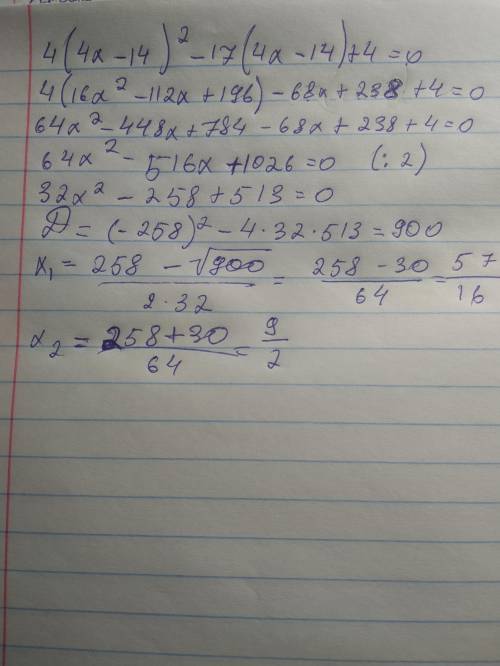 4(4x-14)² - 17(4x-14)+4=0
4(16x²-112x+196)-68x+238+4=0
64x²-448x+784-68x+238+4=0
64x²-516x+1026=0 (:2)
32x²-258+513=0
D=(-258)²-4·32·513=900
x₁ = (258-√900)/(2·32) = (258-30)/64 = 57/16
x₂ = (258+30)/64 = 9/2